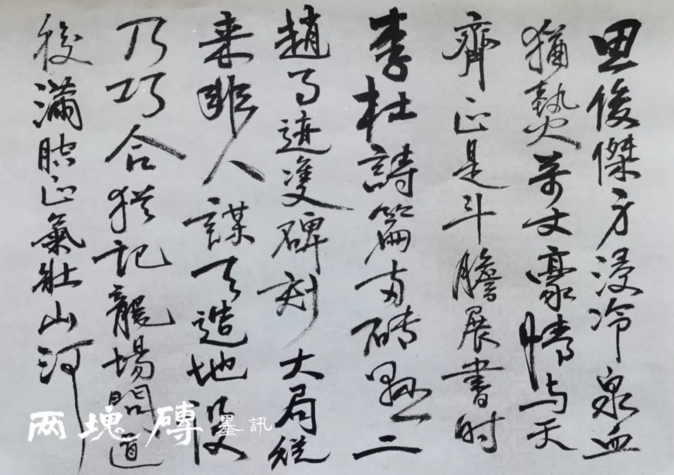 思俊傑方浸冷泉血
猶熱萬丈豪情与天
齊正是斗膽展書时
李杜詩篇両磚二
趙事迹雙碑刻大局從
来非人謀天造地設
乃巧合猶記龍場問道
後滿腔正氣壯山河
两塊磚墨訊